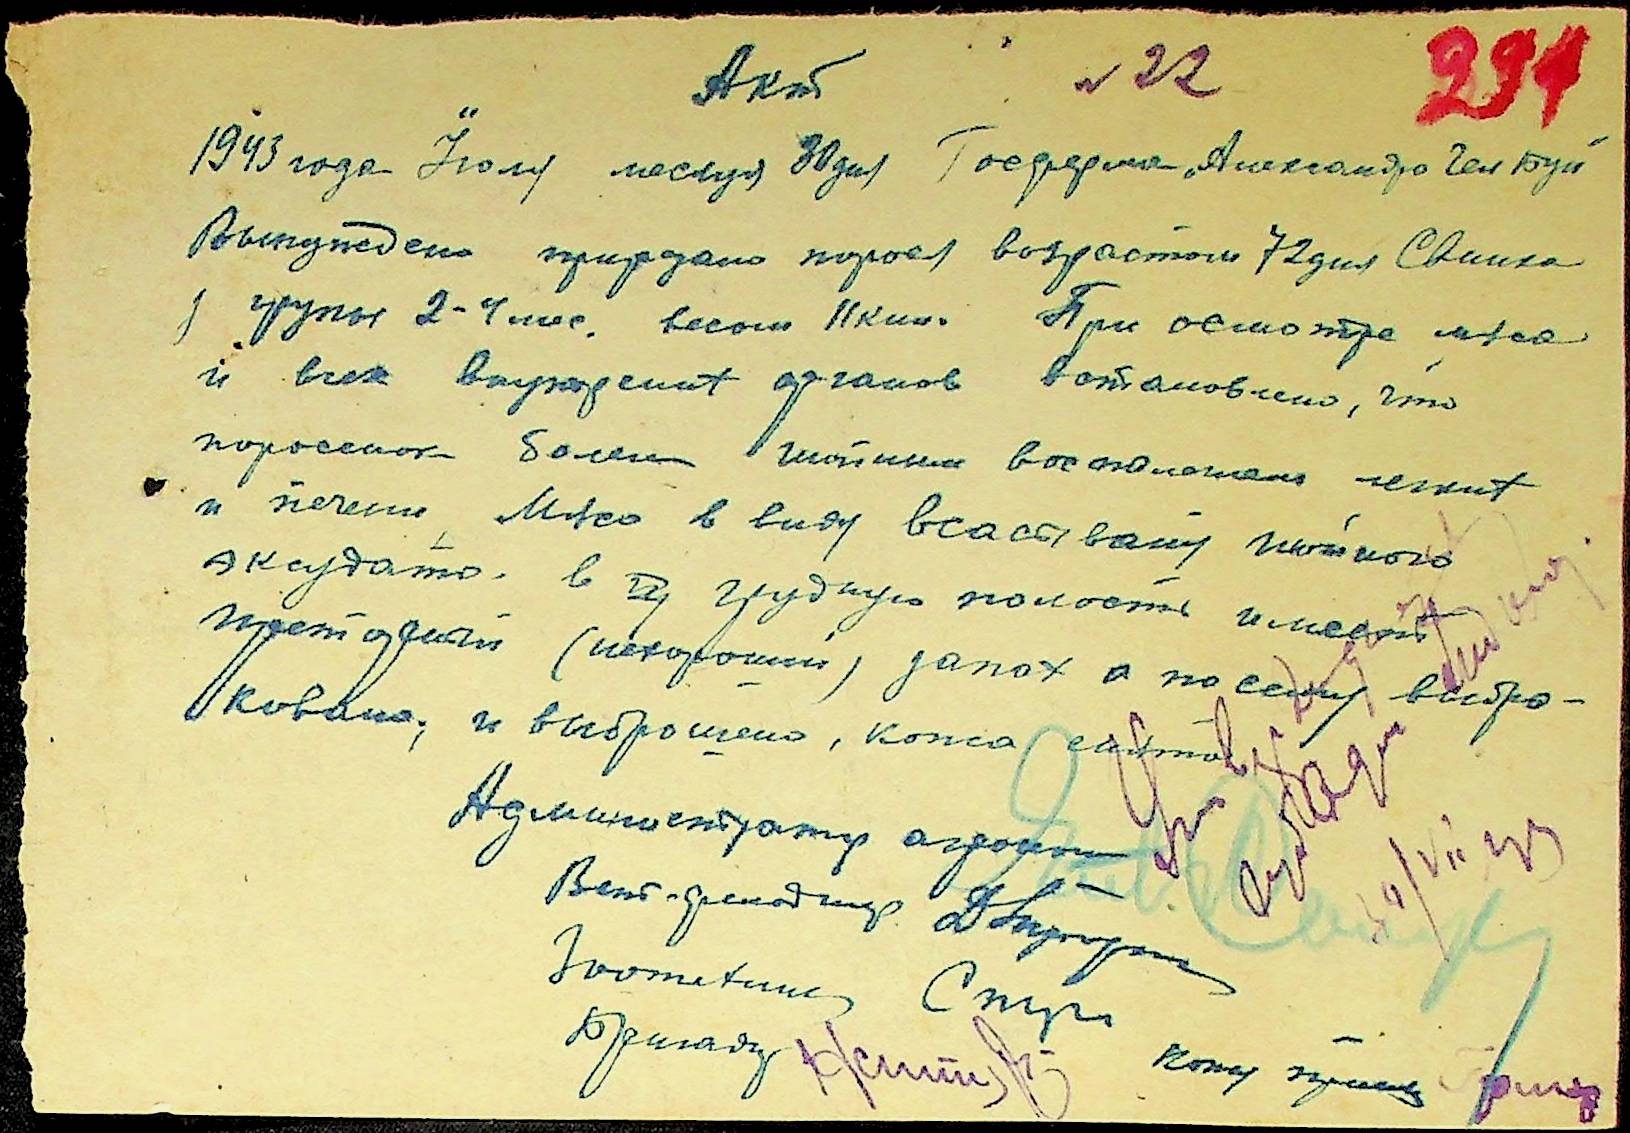 Акт № 22 294
1943 года Июля месяца 30 дня Госферма „Александро
Вынуждено прирезано порося возрастом 72 дня Свинка
групы 2-4 мес. весом 11 кил. При осмотре мяса
и всех внутренит органов востановлено, что
поросенок болен гнойним воспалением легкит
и печени, Мясо в виду всаствану гнойного
эксудата. в грудную полость имеет
(нехороший) запах а по сему выбро-
ковано, и выброшено, кожа снята
Администратор агроном
Вет-фельдшер
Зоотехник
Бригадир
Кожу принял